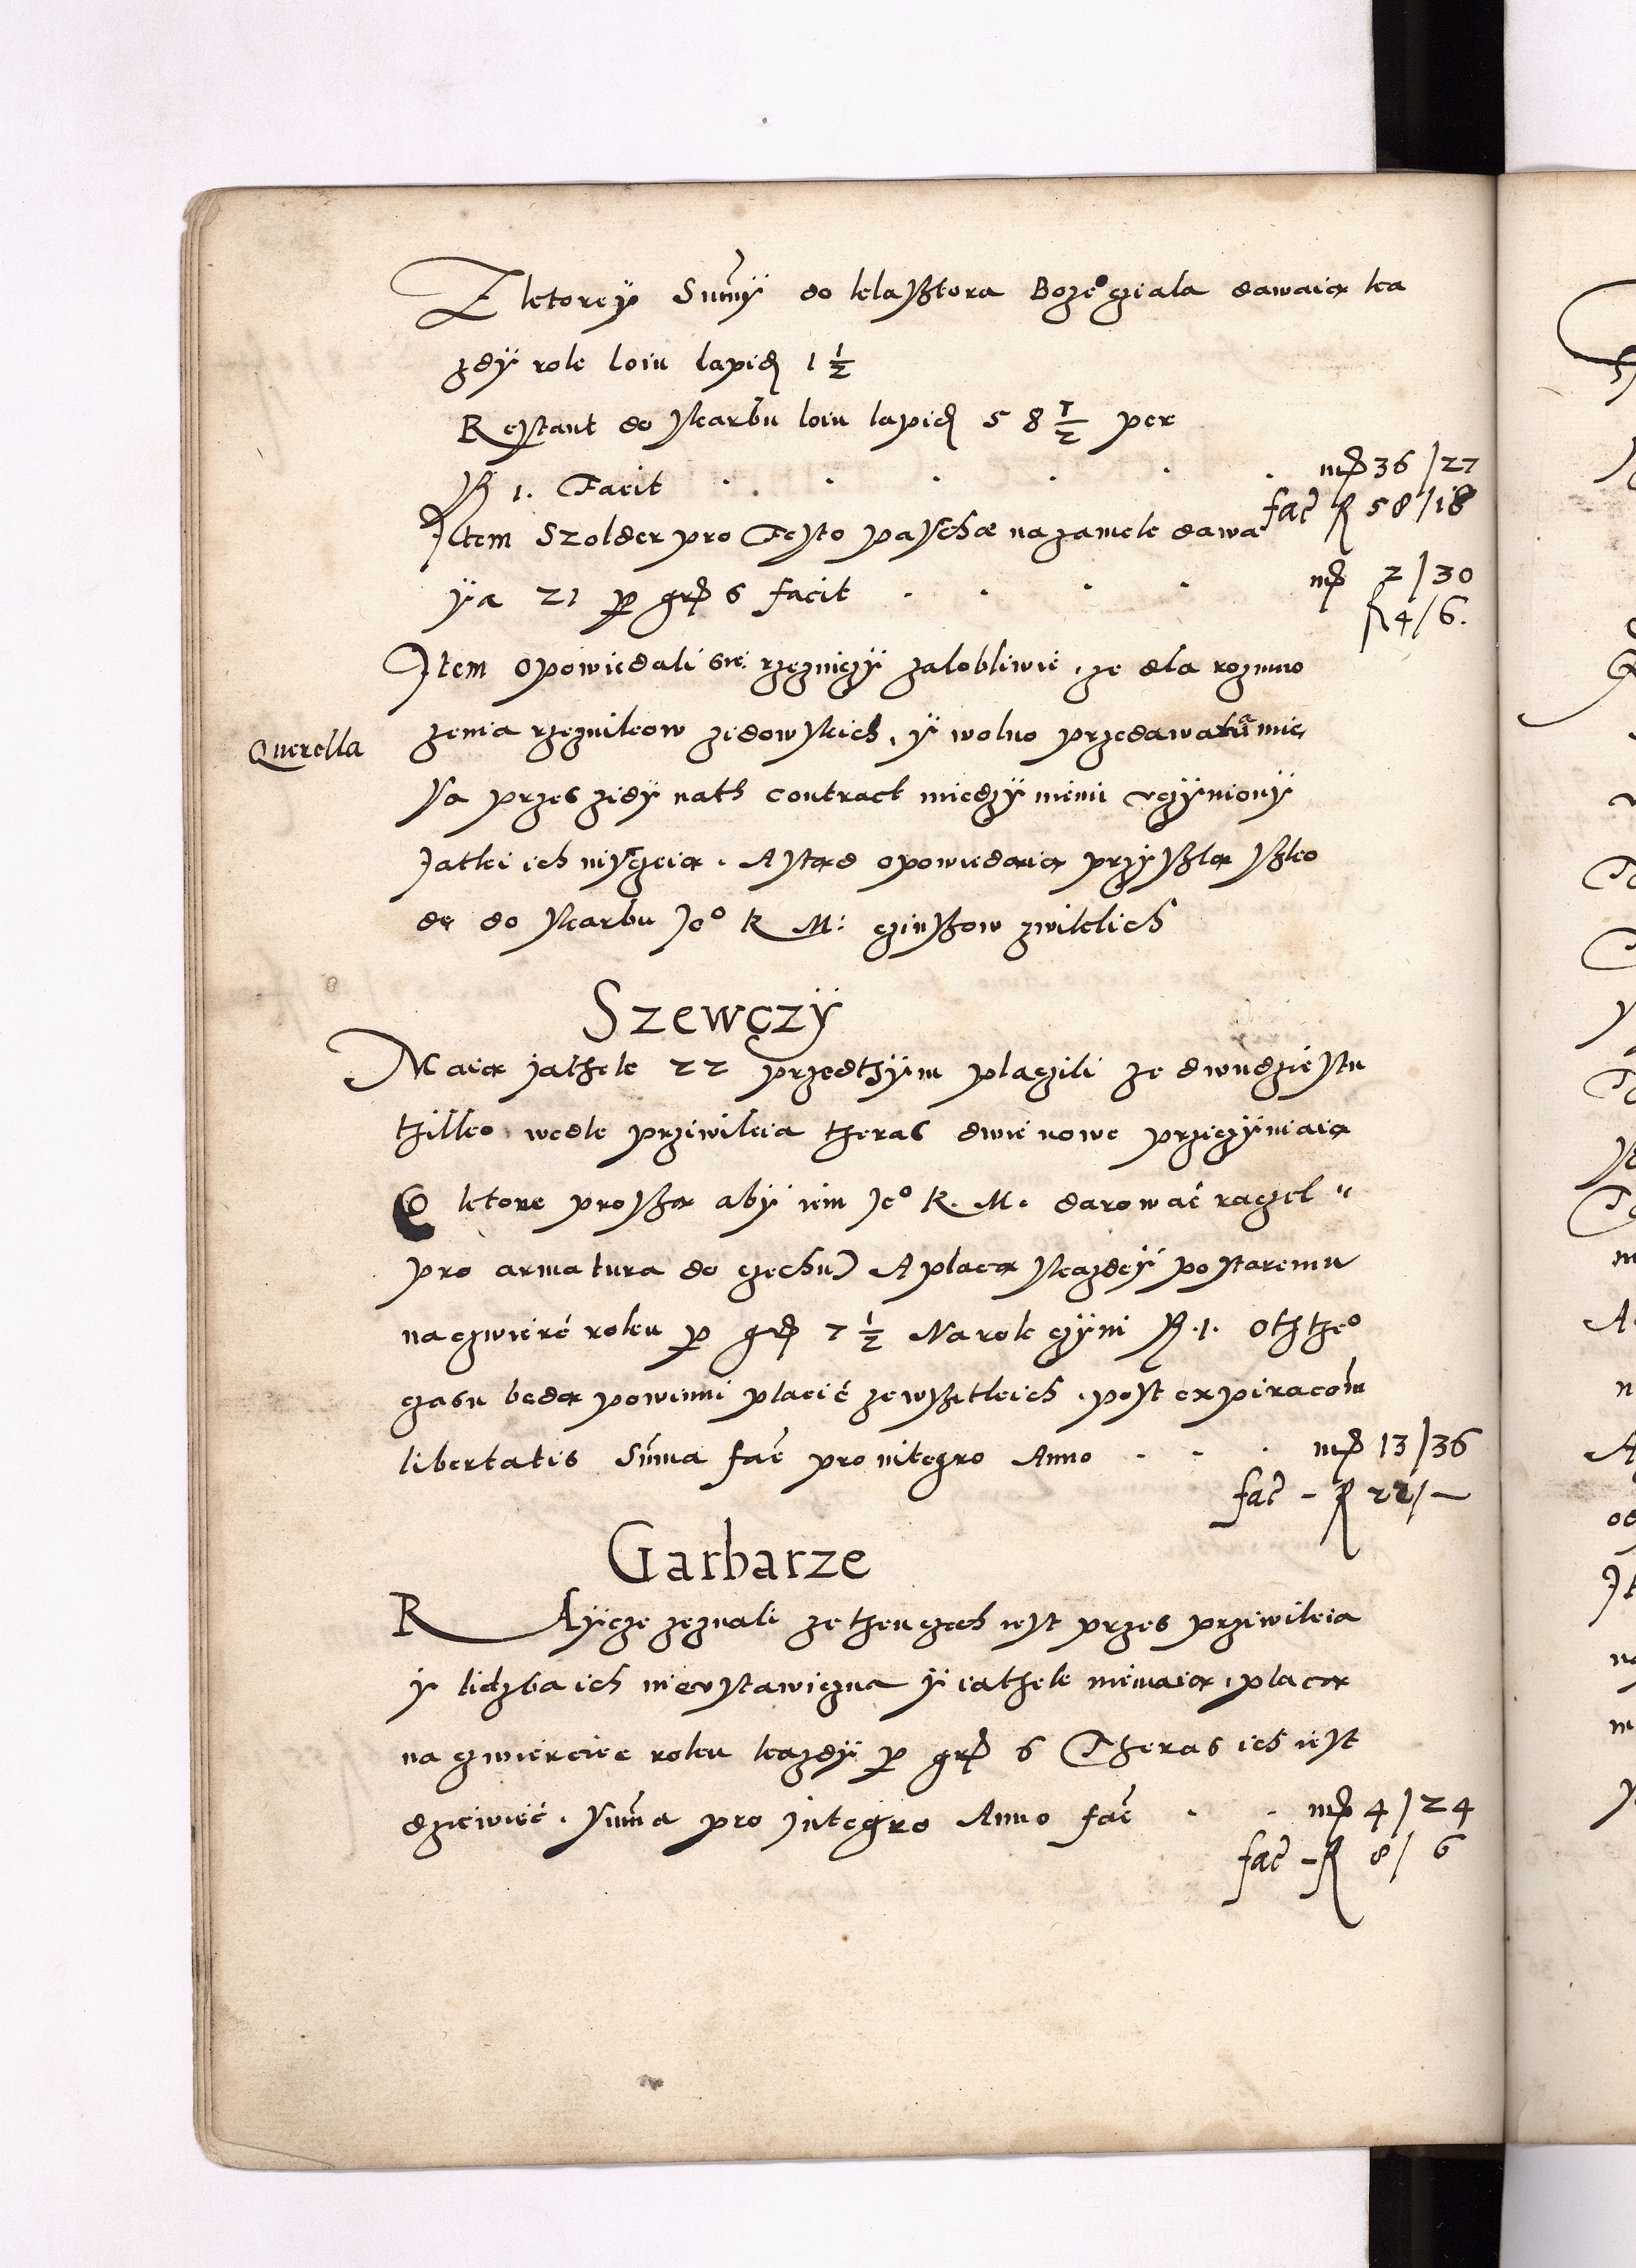 Z ktorey Sum̃y do klasztora Bożeº cziala dawaią ka
żdy rok loiu lapid 1 ½
Restant do skarbu loiu lapid 58 ½ per
fl 1. Facit . . . . . . mrc 36/27
fac̃ fl 58/18
Item Szolder pro Festo paschæ na zamek dawa
ya 21 per gr 6 facit . . . . mrc 2/30
fl 4/6.
Item opowiedali sie rzeżniczy żalobliwie, że dla rozmno
Querella
żenia rzeżnikow żidowskich, y wolno przedawania mię
sa przes żidy nath contract miedzy niemi vczyniony
Jatki ich nisczeią. A stąd opowiedaią przyszlą szko
dę do skarbu Jeº K M: czinszow zwiklich
Szewczy
Maią jathek 22 przedthym placzili ze dwudziestu
thilko wedle prziwileia theras dwie nowe prziczyniaią
ktore proszą aby iem Jeº K. M. darowac raczel
pro armatura do czechu) A placą s każdey po staremu
na czwierć roku per gr 7 ½ Na rok czyni fl. 1. Oth theº
czasu będą powinni placić ze wszitkich, post expiracõm
libertatis Sum̃a fac̃ pro integro Anno . . . mrc 13/36
fac̃ - fl 22/-
Garbarze
RAycze zeznali że then czech iest przes prziwileia
y liczba ich nievstawiczna y iathek niemaią, placą
na czwiercie roku każdy per gr 6 Theras ich iest
dziewieć. Sum̃a pro Integro Anno fac̃ . . mrc 4/24
fac̃ - fl 8/6